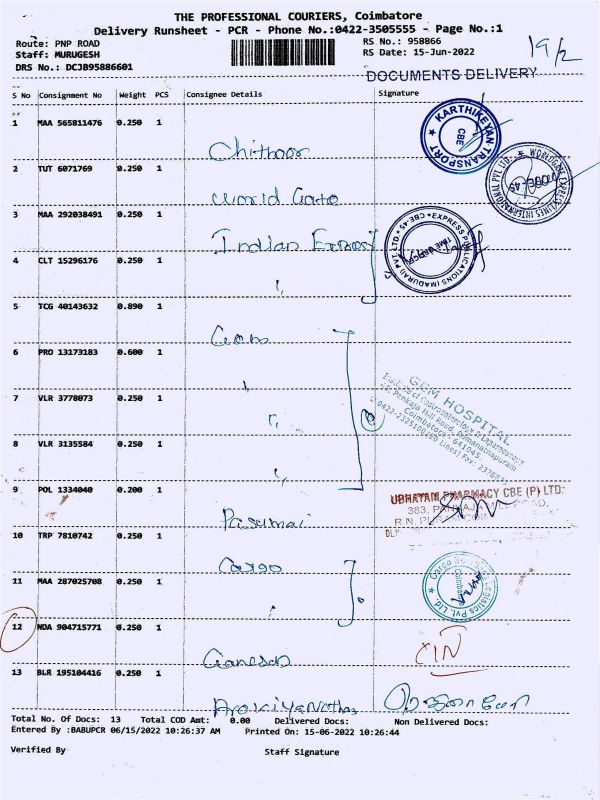 THE PROFESSIONAL COURIERS, Coimbatore
Delivery Runsheet - PCR - Phone No.:0422-3505555 - Page No.:1
Route: PNP ROAD
RS No.: 958866
Staff: MURUGESH
RS Date: 15-Jun-2022
19/2
DRS No.: DCJB95886601
DOCUMENTS DELIVERY
S No Consignment No Weight PCS Consignee Details Signature
1 MAA 565811476 0.250 1
KARTHIKEYAN TRANSPORT CBE
Chithoor
2 TUT 6071769 0.250 1
World Gate
3 MAA 292038491 0.250 1
EXPRESS PUBLICATIONS (MADURAI) PVT. LTD. CBE-45
Indian Express
4 CLT 15296176 0.250 1
"
5 TCG 40143632 0.890 1
Gem
6 PRO 13173183 0.600 1
"
7 VLR 3778073 0.250 1
GEM HOSPITAL
"
8 VLR 3135584 0.250 1
Coimbatore - 641045.
"
9 POL 1334040 0.200 1
UBHAYAM PHARMACY CBE (P) LTD.
Pasumai
10 TRP 7810742 0.250 1
Cargo
11 MAA 287025708 0.250 1
Logistics Pvt. Ltd.
"
12 NDA 904715771 0.250 1
Ganesan
13 BLR 195104416 0.250 1
Total No. Of Docs: 13 Total COD Amt: 0.00 Delivered Docs: Non Delivered Docs:
Entered By :BABUPCR 06/15/2022 10:26:37 AM Printed On: 15-06-2022 10:26:44
Verified By Staff Signature